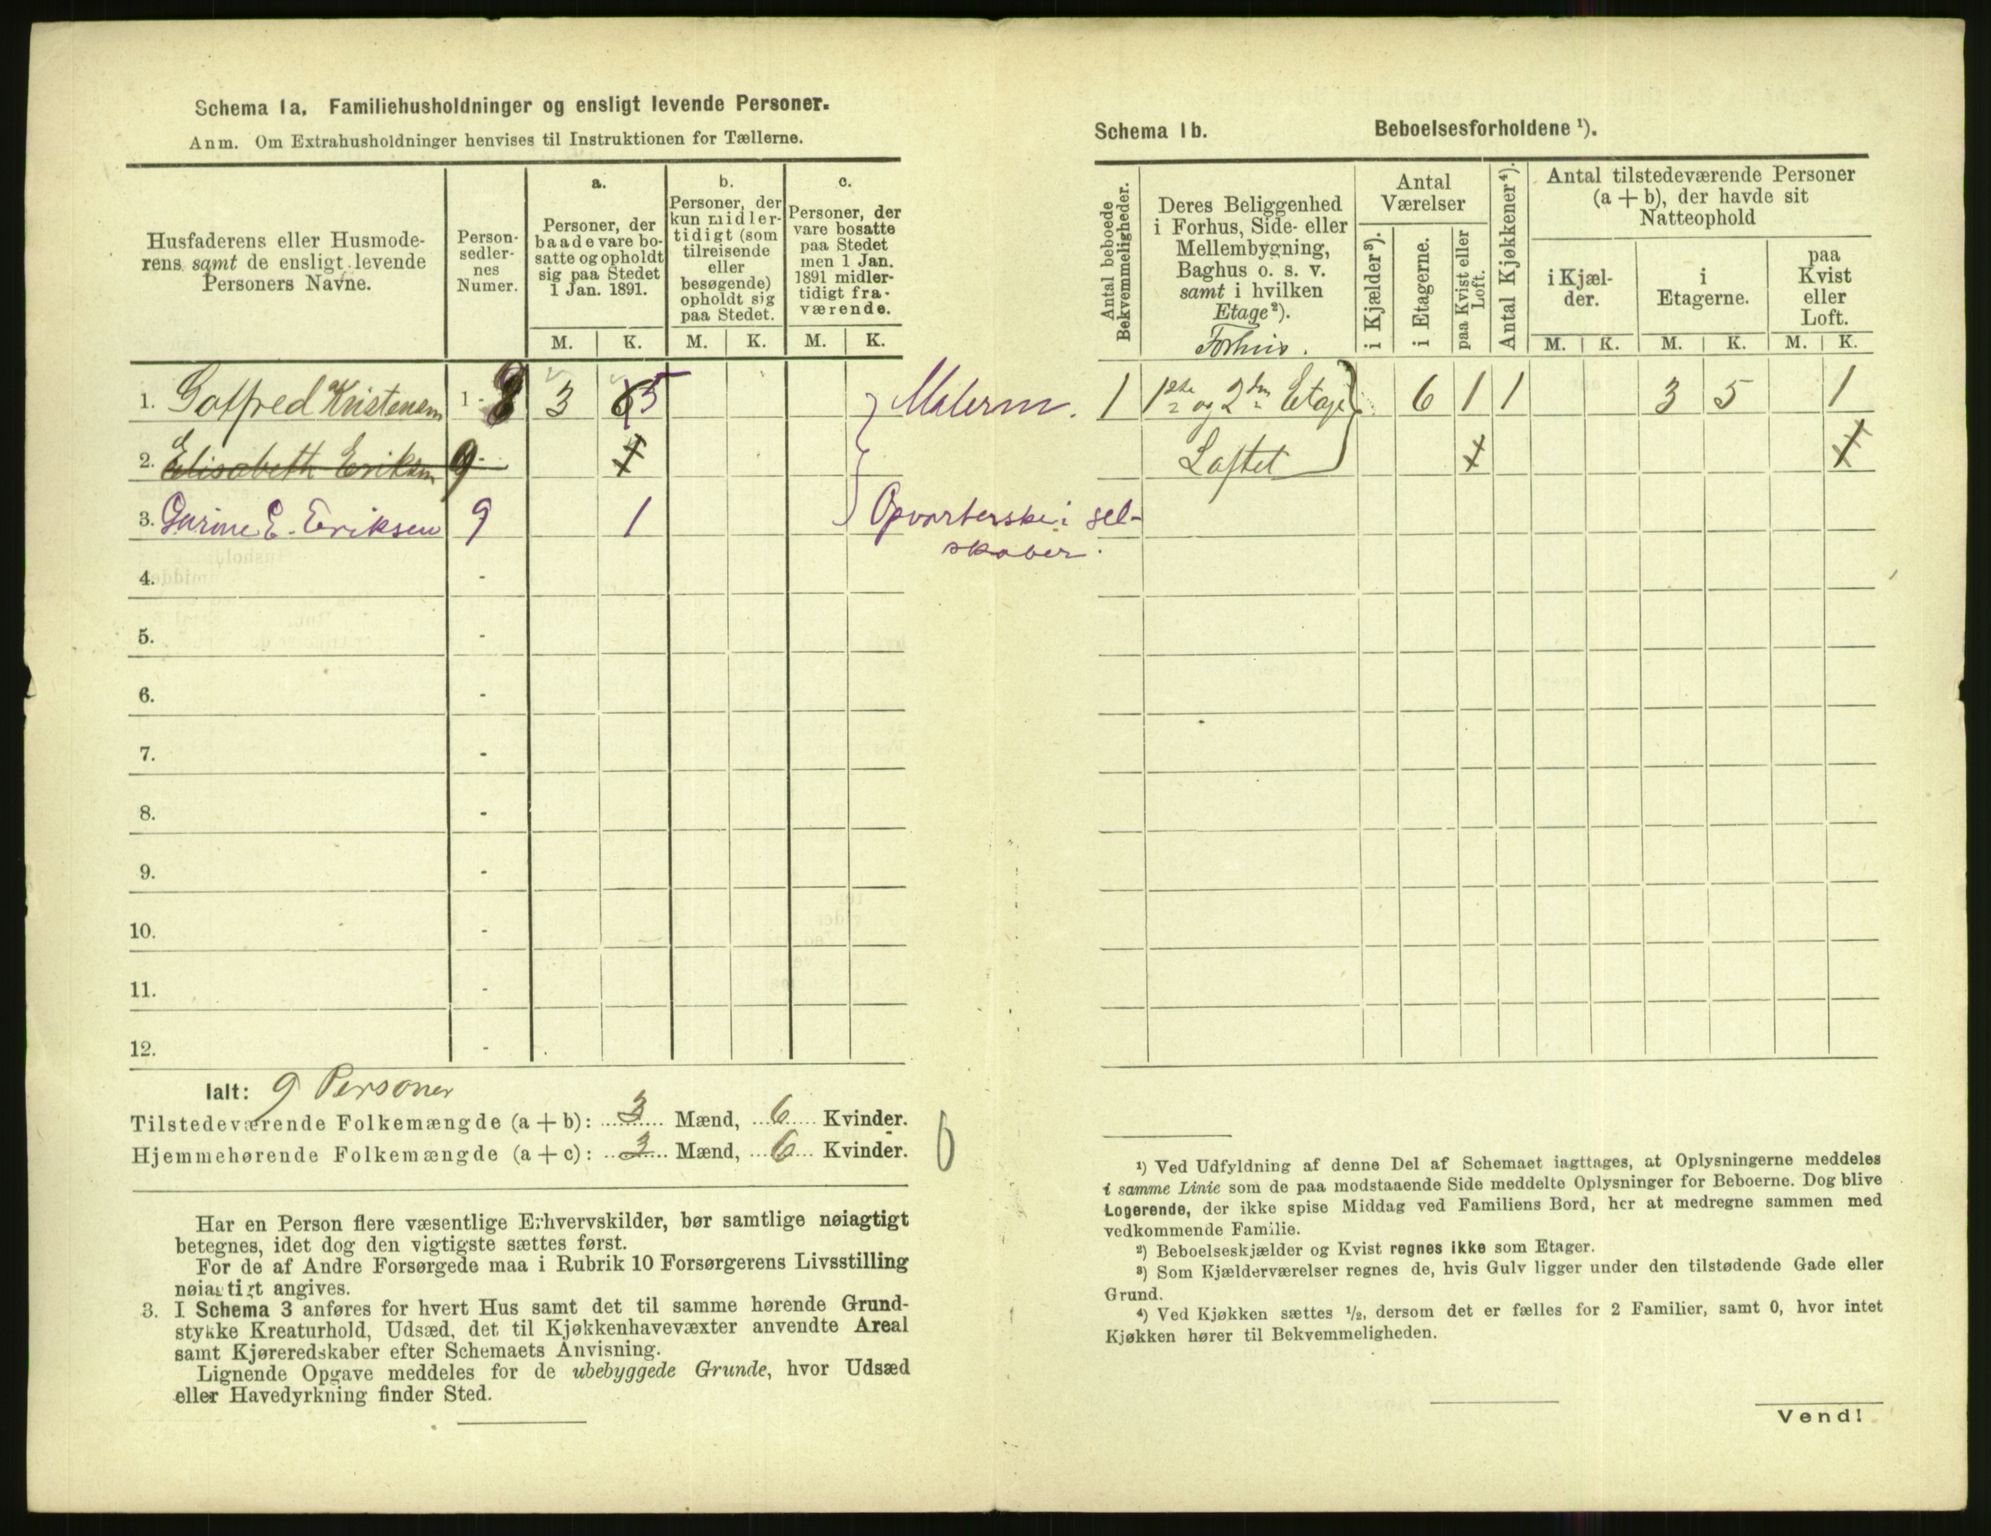 Schema 1a. Familiehusholdninger og ensligt levende Personer.
Anm. Om Extrahusholdninger henvises til Instruktionen for Tællerne.
Husfaderens eller Husmode-
rens samt de ensligt levende
Personers Navne.
Person-
sedler-
nes
Numer.
a.
Personer, der
baade vare bo-
satte og opholdt
sig paa Stedet
1 Jan. 1891.
b.
Personer, der
kun midler-
tidigt (som
tilreisende
eller
besøgende)
opholdt sig
paa Stedet.
c.
Personer, der
vare bosatte
paa Stedet
men 1 Jan.
1891 midler-
tidigt fra-
værende.
M. K. M. K. M. K.
1. Gotfred Kristensen 1 - 8 3 6 5 Malerm.
2. Elisabeth Eriksen 9 1
3. Gurine E. Eriksen 9 1 Opvarterske i sel-
skaber.
4. -
5. -
6. -
7. -
8. -
9. -
10. -
11. -
12. -
Ialt: 9 Personer
Tilstedeværende Folkemængde (a + b): 3 Mænd, 6 Kvinder.
Hjemmehørende Folkemængde (a + c): 3 Mænd, 6 Kvinder.
Har en Person flere væsentlige Erhvervskilder, bør samtlige nøiagtigt
betegnes, idet dog den vigtigste sættes først.
For de af Andre Forsørgede maa i Rubrik 10 Forsørgerens Livsstilling
nøiagtigt angives.
3. I Schema 3 anføres for hvert Hus samt det til samme hørende Grund-
stykke Kreaturhold, Udsæd, det til Kjøkkenhavevæxter anvendte Areal
samt Kjøreredskaber efter Schemaets Anvisning.
Lignende Opgave meddeles for de ubebyggede Grunde, hvor Udsæd
eller Havedyrkning finder Sted.
Schema 1b. Beboelsesforholdene ¹).
Antal beboede
Bekvemmeligheder.
Deres Beliggenhed
i Forhus, Side- eller
Mellembygning,
Baghus o. s. v.
samt i hvilken
Etage²).
Forhus.
Antal
Værelser
i Kjælder³).
i Etagerne.
paa Kvist eller
Loft.
Antal Kjøkkener⁴).
Antal tilstedeværende Personer
(a + b), der havde sit
Natteophold
i Kjæl-
der.
i
Etagerne.
paa
Kvist
eller
Loft.
M. K. M. K. M. K.
1 1ste og 2den Etage 6 1 1 3 5 1
Loftet 1 1
¹) Ved Udfyldning af denne Del af Schemaet iagttages, at Oplysningerne meddeles
i samme Linie som de paa modstaaende Side meddelte Oplysninger for Beboerne. Dog blive
Logerende, der ikke spise Middag ved Familiens Bord, her at medregne sammen med
vedkommende Familie.
²) Beboelseskjælder og Kvist regnes ikke som Etager.
³) Som Kjælderværelser regnes de, hvis Gulv ligger under den tilstødende Gade eller
Grund.
⁴) Ved Kjøkken sættes ½, dersom det er fælles for 2 Familier, samt 0, hvor intet
Kjøkken hører til Bekvemmeligheden.
Vend!